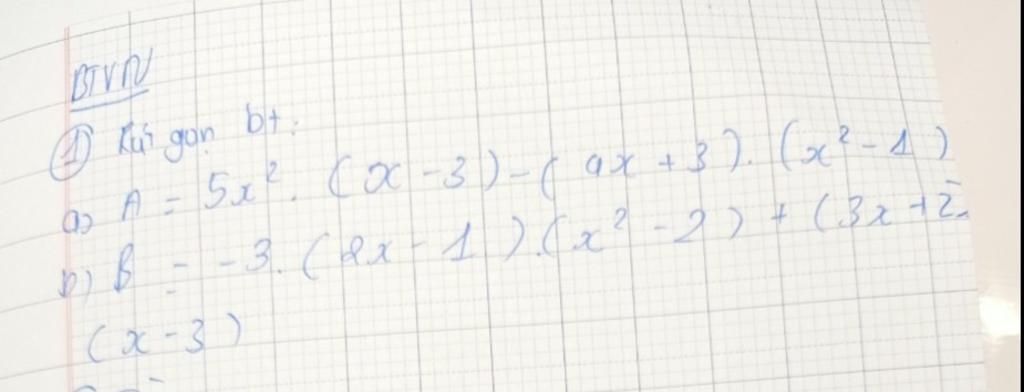 BTVN
① Rút gọn bt:
a) A = 5x². (x - 3) - ( 4x + 3). (x² - 1)
b) B = -3. (2x - 1).(x² - 2) + (3x + 2).
(x - 3)